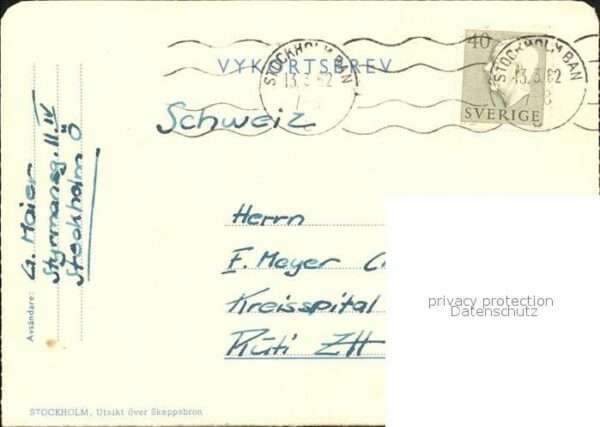 VYKORTSBREV
STOCKHOLM BAN
13.3.62
40
SVERIGE
STOCKHOLM BAN
13.3.62
Schweiz
Avsändare: G. Maier
Styrmansg. 11. IV
Stockholm Ö
Herrn
F. Meyer
Kreisspital
Rüti ZH
privacy protection
Datenschutz
STOCKHOLM, Utsikt över Skeppsbron